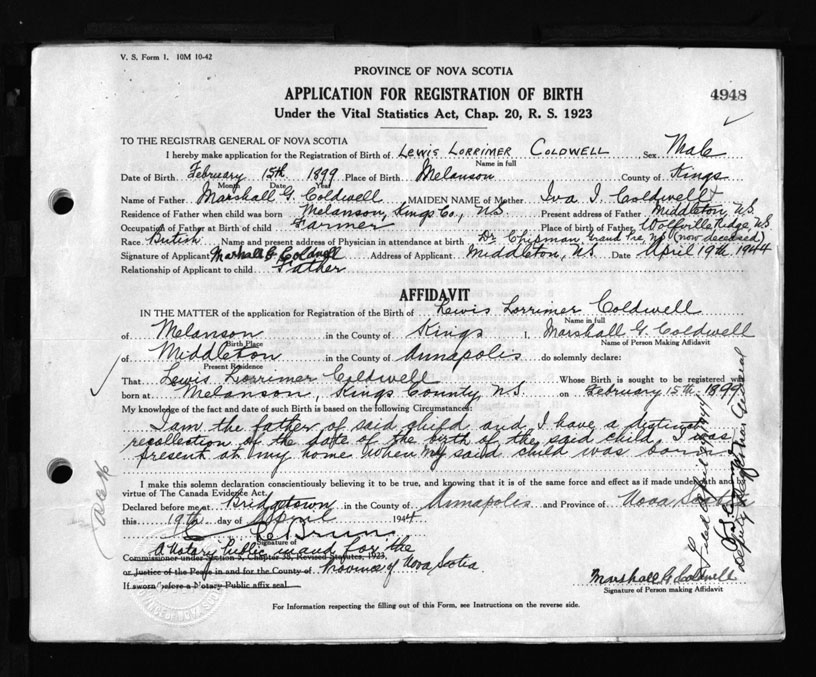 V. S. Form 1. 10M 10-42
PROVINCE OF NOVA SCOTIA
APPLICATION FOR REGISTRATION OF BIRTH 4948
Under the Vital Statistics Act, Chap. 20, R. S. 1923
TO THE REGISTRAR GENERAL OF NOVA SCOTIA
I hereby make application for the Registration of Birth of LEWIS LORRIMER COLDWELL Sex Male
Name in full
Date of Birth February 15th 1899 Place of Birth Melanson County of Kings
Month Date Year
Name of Father Marshall G. Coldwell MAIDEN NAME of Mother Iva I. Coldwell
Residence of Father when child was born Melanson, Kings Co., N.S. Present address of Father Middleton, N.S.
Occupation of Father at Birth of child Farmer Place of birth of Father Wolfville Ridge, N.S.
Race British Name and present address of Physician in attendance at birth Dr. Chipman, Grand Pre, N.S. (now deceased)
Signature of Applicant Marshall G Coldwell Address of Applicant Middleton, N.S. Date April 19th 1944
Relationship of Applicant to child Father
AFFIDAVIT
IN THE MATTER of the application for Registration of the Birth of Lewis Lorrimer Coldwell
Name in full
of Melanson in the County of Kings I, Marshall G. Coldwell
Birth Place Name of Person Making Affidavit
of Middleton in the County of Annapolis do solemnly declare:
Present Residence
That Lewis Lorrimer Coldwell Whose Birth is sought to be registered was
born at Melanson, Kings County, N.S. on February 15th 1899
My knowledge of the fact and date of such Birth is based on the following Circumstances:
I am the father of said child and I have a distinct
recollection of the date of the birth of the said child. I was
present at my home when my said child was born
I make this solemn declaration conscientiously believing it to be true, and knowing that it is of the same force and effect as if made under oath and by
virtue of The Canada Evidence Act.
Declared before me at Bridgetown in the County of Annapolis and Province of Nova Scotia
this 19th day of April 1944
Signature of
A Notary Public in and for the
Commissioner under Section 5, Chapter 38, Revised Statutes, 1923,
or Justice of the Peace in and for the County of Province of Nova Scotia.
If sworn before a Notary Public affix seal
Marshall G Coldwell
Signature of Person making Affidavit
For Information respecting the filling out of this Form, see Instructions on the reverse side.
Deputy Registrar General